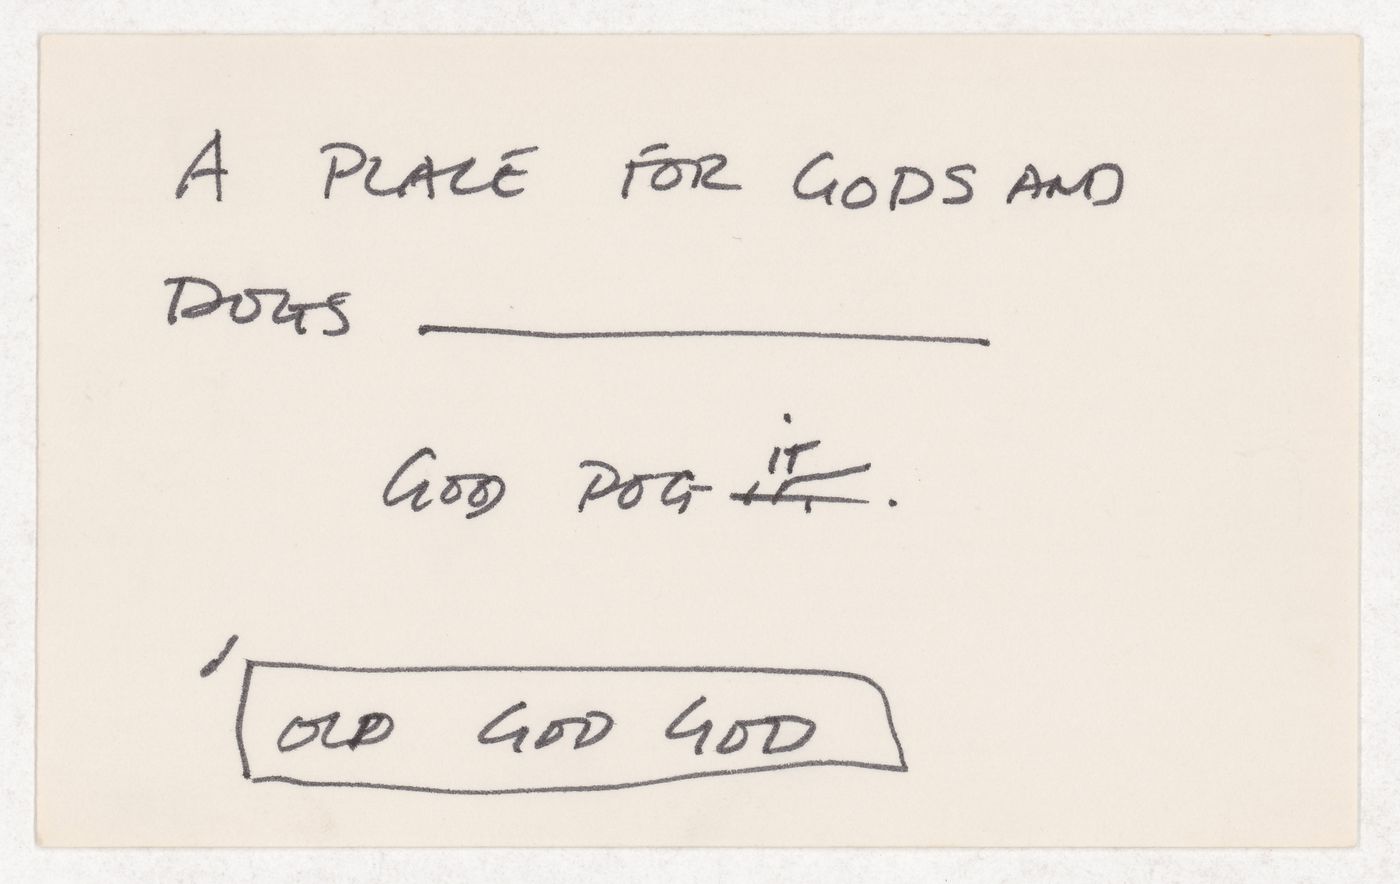 A PLACE FOR GODS AND
DOGS
GOD DOG IT.
OLD GOD GOD